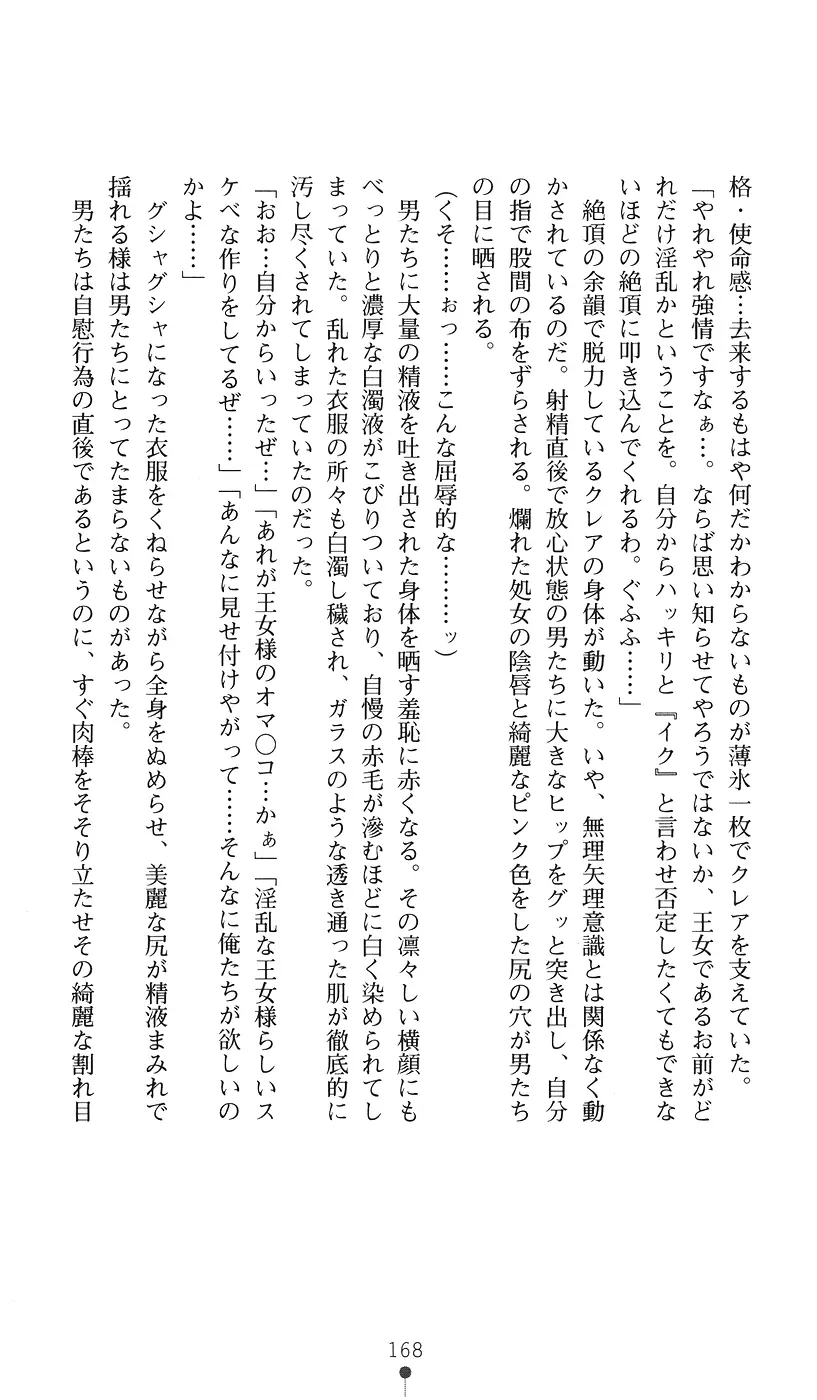 格・使命感…去来するもはや何だかわからないものが薄氷一枚でクレアを支えていた。
「やれやれ強情ですなぁ…。ならば思い知らせてやろうではないか、王女であるお前がど
れだけ淫乱かということを。自分からハッキリと『イク』と言わせ否定したくてもできな
いほどの絶頂に叩き込んでくれるわ。ぐふふ……」
絶頂の余韻で脱力しているクレアの身体が動いた。いや、無理矢理意識とは関係なく動
かされているのだ。射精直後で放心状態の男たちに大きなヒップをグッと突き出し、自分
の指で股間の布をずらされる。爛れた処女の陰唇と綺麗なピンク色をした尻の穴が男たち
の目に晒される。
(くそ……ぉっ……こんな屈辱的な………ッ)
男たちに大量の精液を吐き出された身体を晒す羞恥に赤くなる。その凛々しい横顔にも
べっとりと濃厚な白濁液がこびりついており、自慢の赤毛が滲むほどに白く染められてし
まっていた。乱れた衣服の所々も白濁し穢され、ガラスのような透き通った肌が徹底的に
汚し尽くされてしまっていたのだった。
「おお…自分からいったぜ…」「あれが王女様のオマ○コ…かぁ」「淫乱な王女様らしいス
ケベな作りをしてるぜ……」「あんなに見せ付けやがって……そんなに俺たちが欲しいの
かよ……」
グシャグシャになった衣服をくねらせながら全身をぬめらせ、美麗な尻が精液まみれで
揺れる様は男たちにとってたまらないものがあった。
男たちは自慰行為の直後であるというのに、すぐ肉棒をそそり立たせその綺麗な割れ目
168